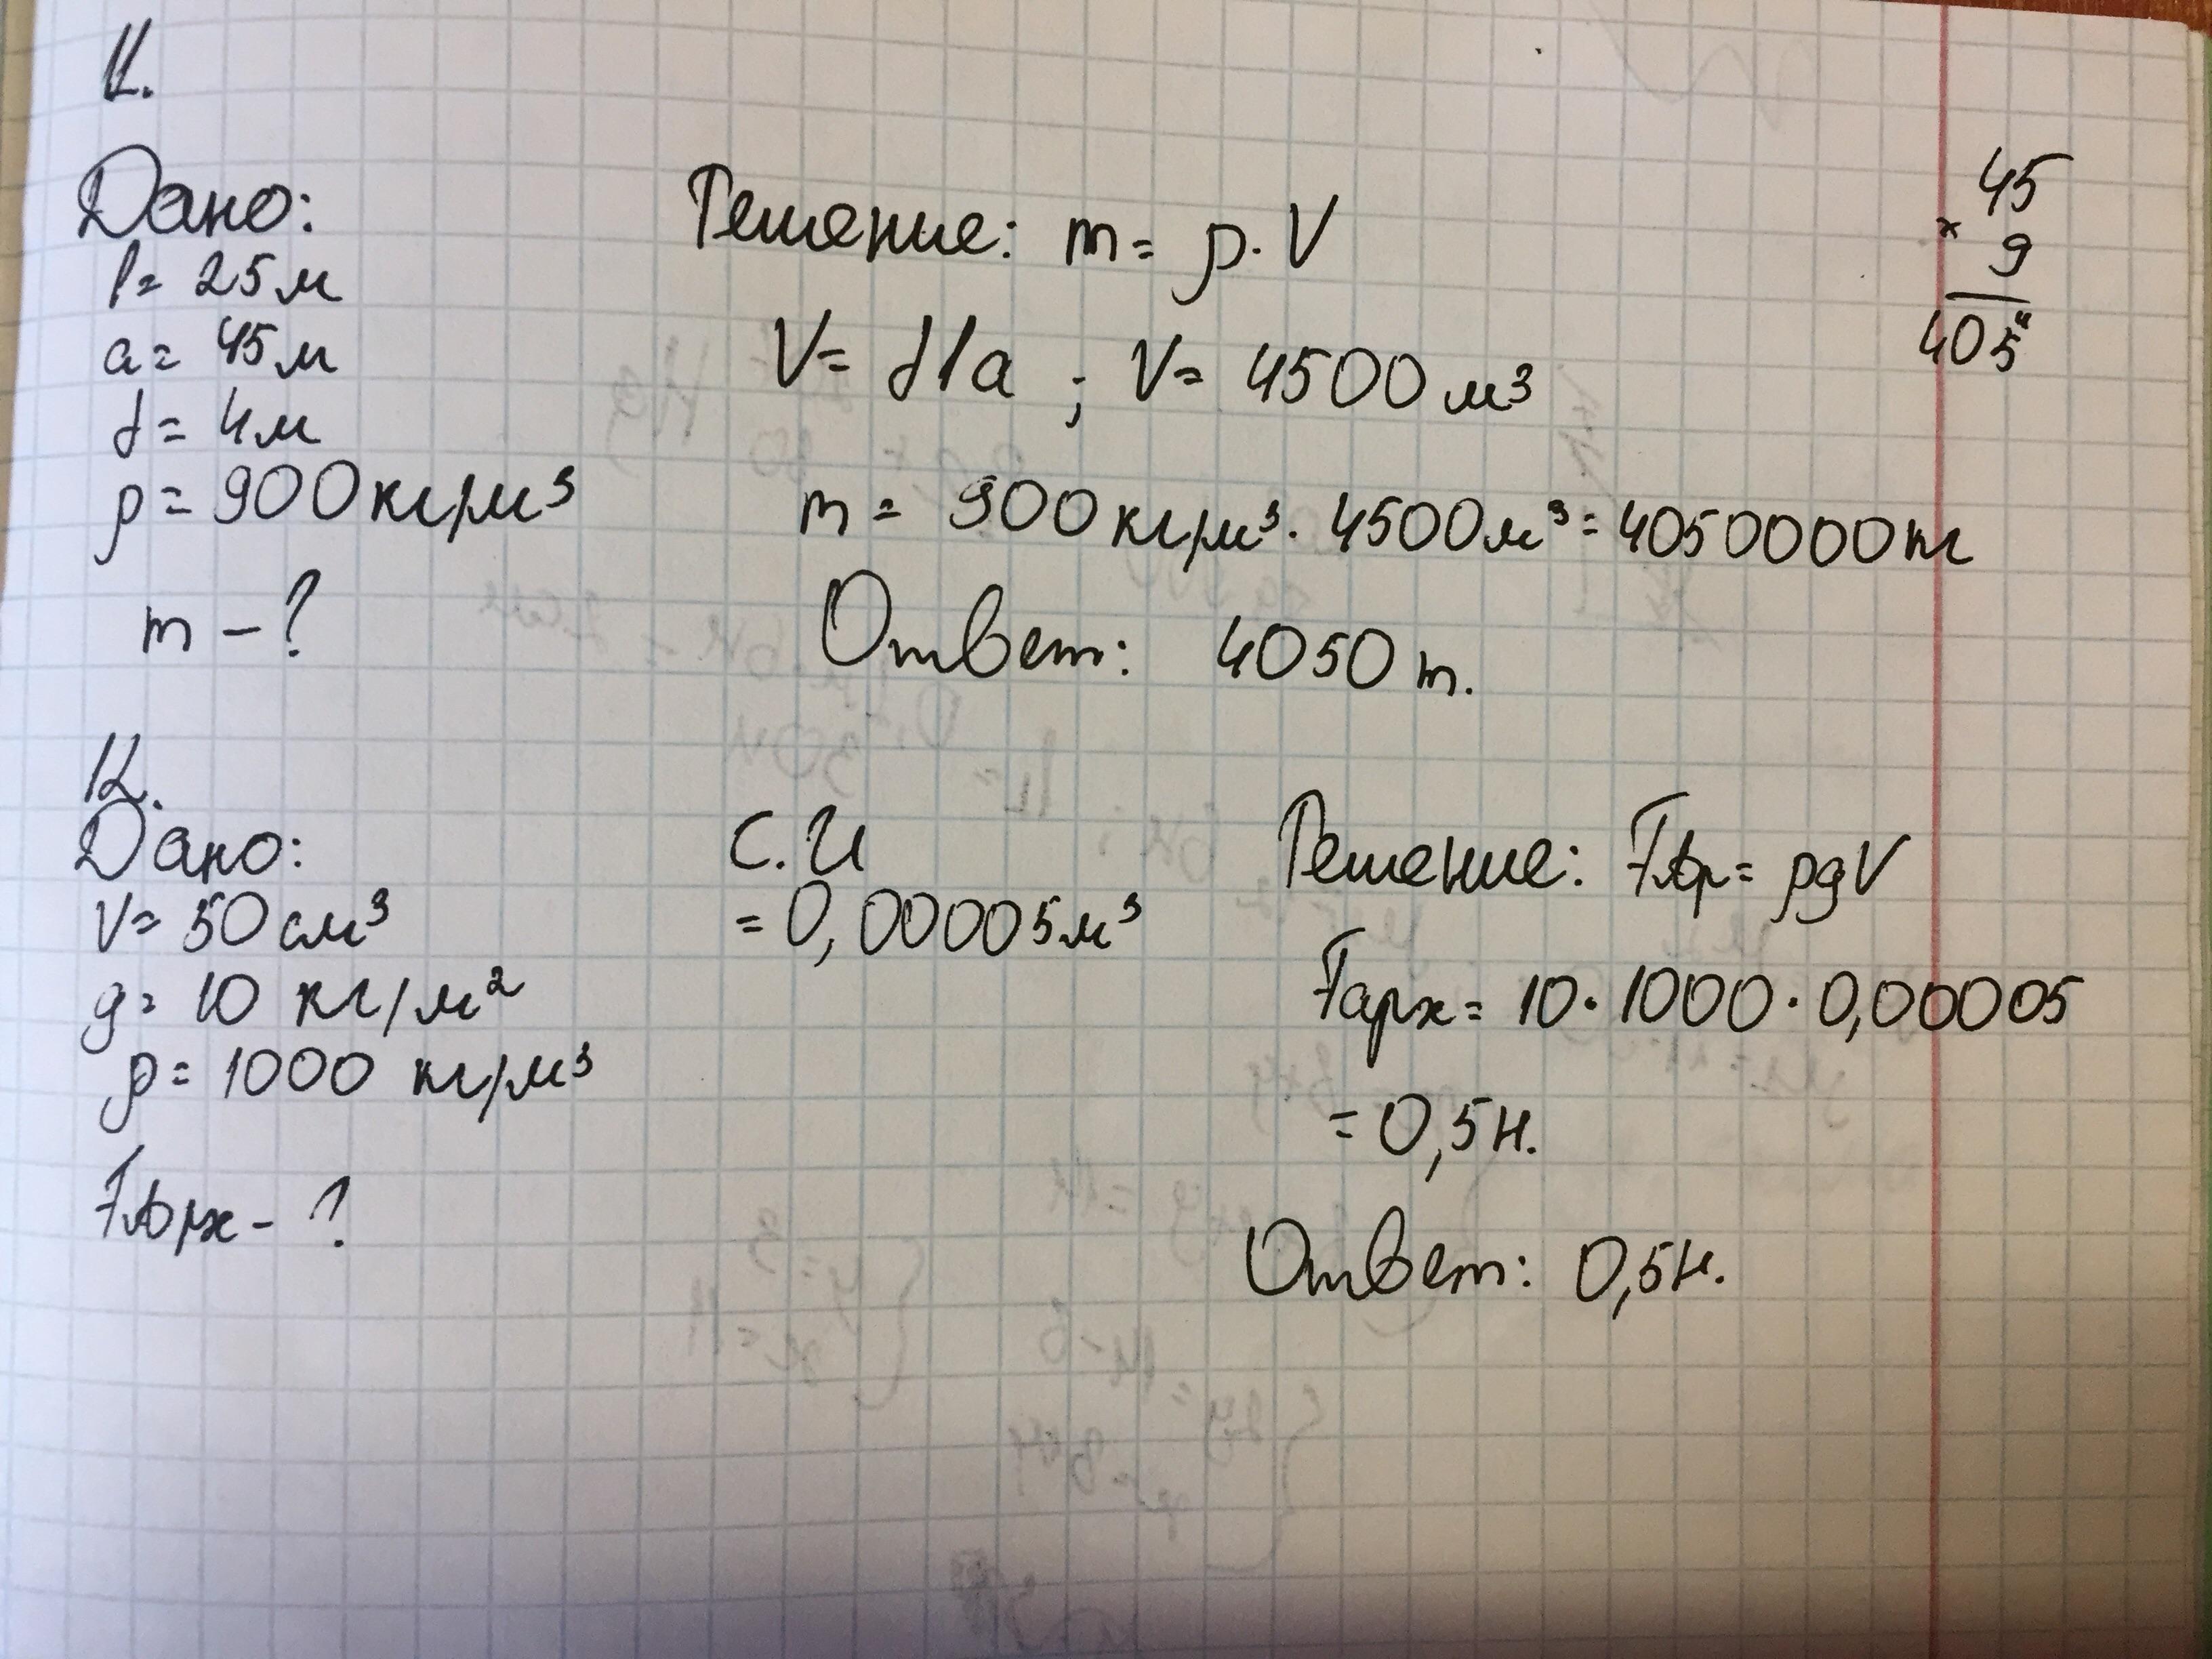 11.
Дано:
l = 25м
a = 45м
d = 4м
ρ = 900кг/м³
m – ?
Решение: m = ρ · V
V = dla ; V = 4500 м³
m = 900 кг/м³ · 4500м³ = 4050000 кг
Ответ: 4050 т.
45
× 9
405
12.
Дано:
V = 50 см³
g = 10 кг/м²
ρ = 1000 кг/м³
Fарх – ?
С.И
= 0,00005м³
Решение: Fар = ρgV
Fарх = 10 · 1000 · 0,00005
= 0,5 Н.
Ответ: 0,5Н.